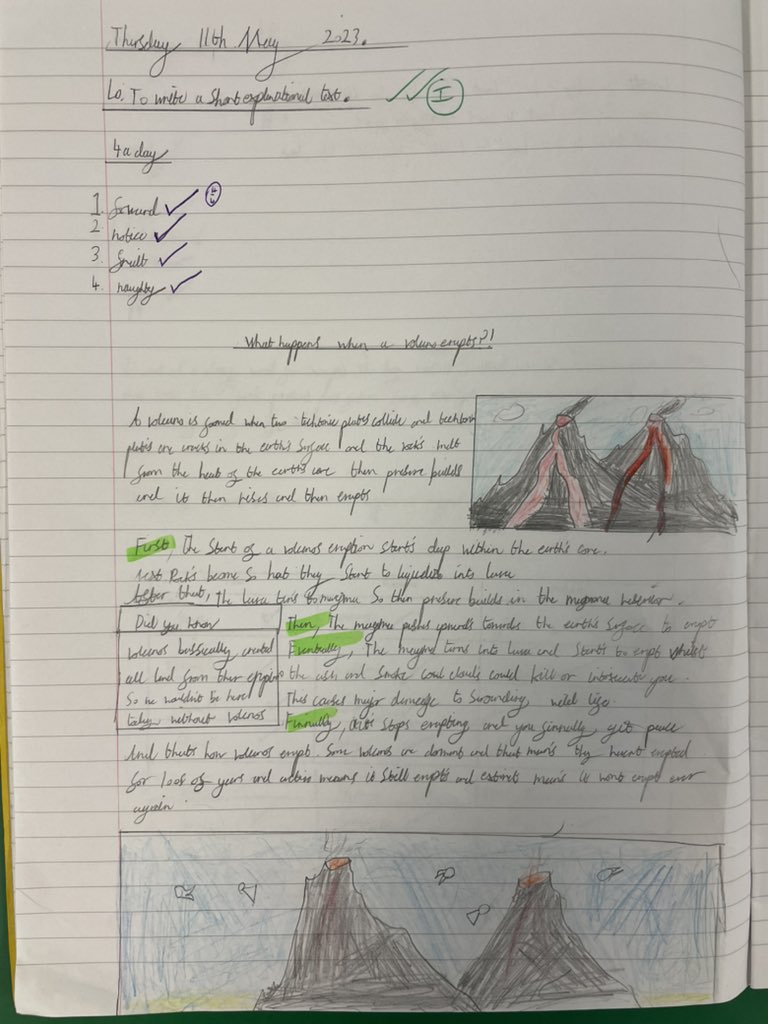 Thursday 11th May 2023.
Lo. To write a Short explanational text.
I
4 a day
1. forward
4/4
2 notice
3. fruit
4. naughty
What happens when a volcano erupts?!
A volcano is formed when two techtonic plates collide and techtonic
plates are cracks in the earth's surface and the rocks melt
from the heat of the earths core then presure builds
and it then rises and then erupts
First, The Start of a volcanos eruption start's deep within the earth's core.
next Rock's become So hot they Start to into lava
After that, The lava turns to magma So then presure builds in the
Did you know
volcanos bassically created
all land from ther
So we wouldn't be here
today without volcanos
Then, The magma pushes upwards towards the earth's Surface to erupt
Eventually, The magma turns into lava and Starts to erupt whilst
the ash and Smoke clouds could kill or you.
This causes major damage to Surounding wild life
Finnally, it Stops erupting and you finnally get peace
And thats how volcanos erupt. Some volcanos are dormant and that mean's they havent erupted
for 100s of years and active means it Still erupts and extinct mean's it wont erupt ever
again.